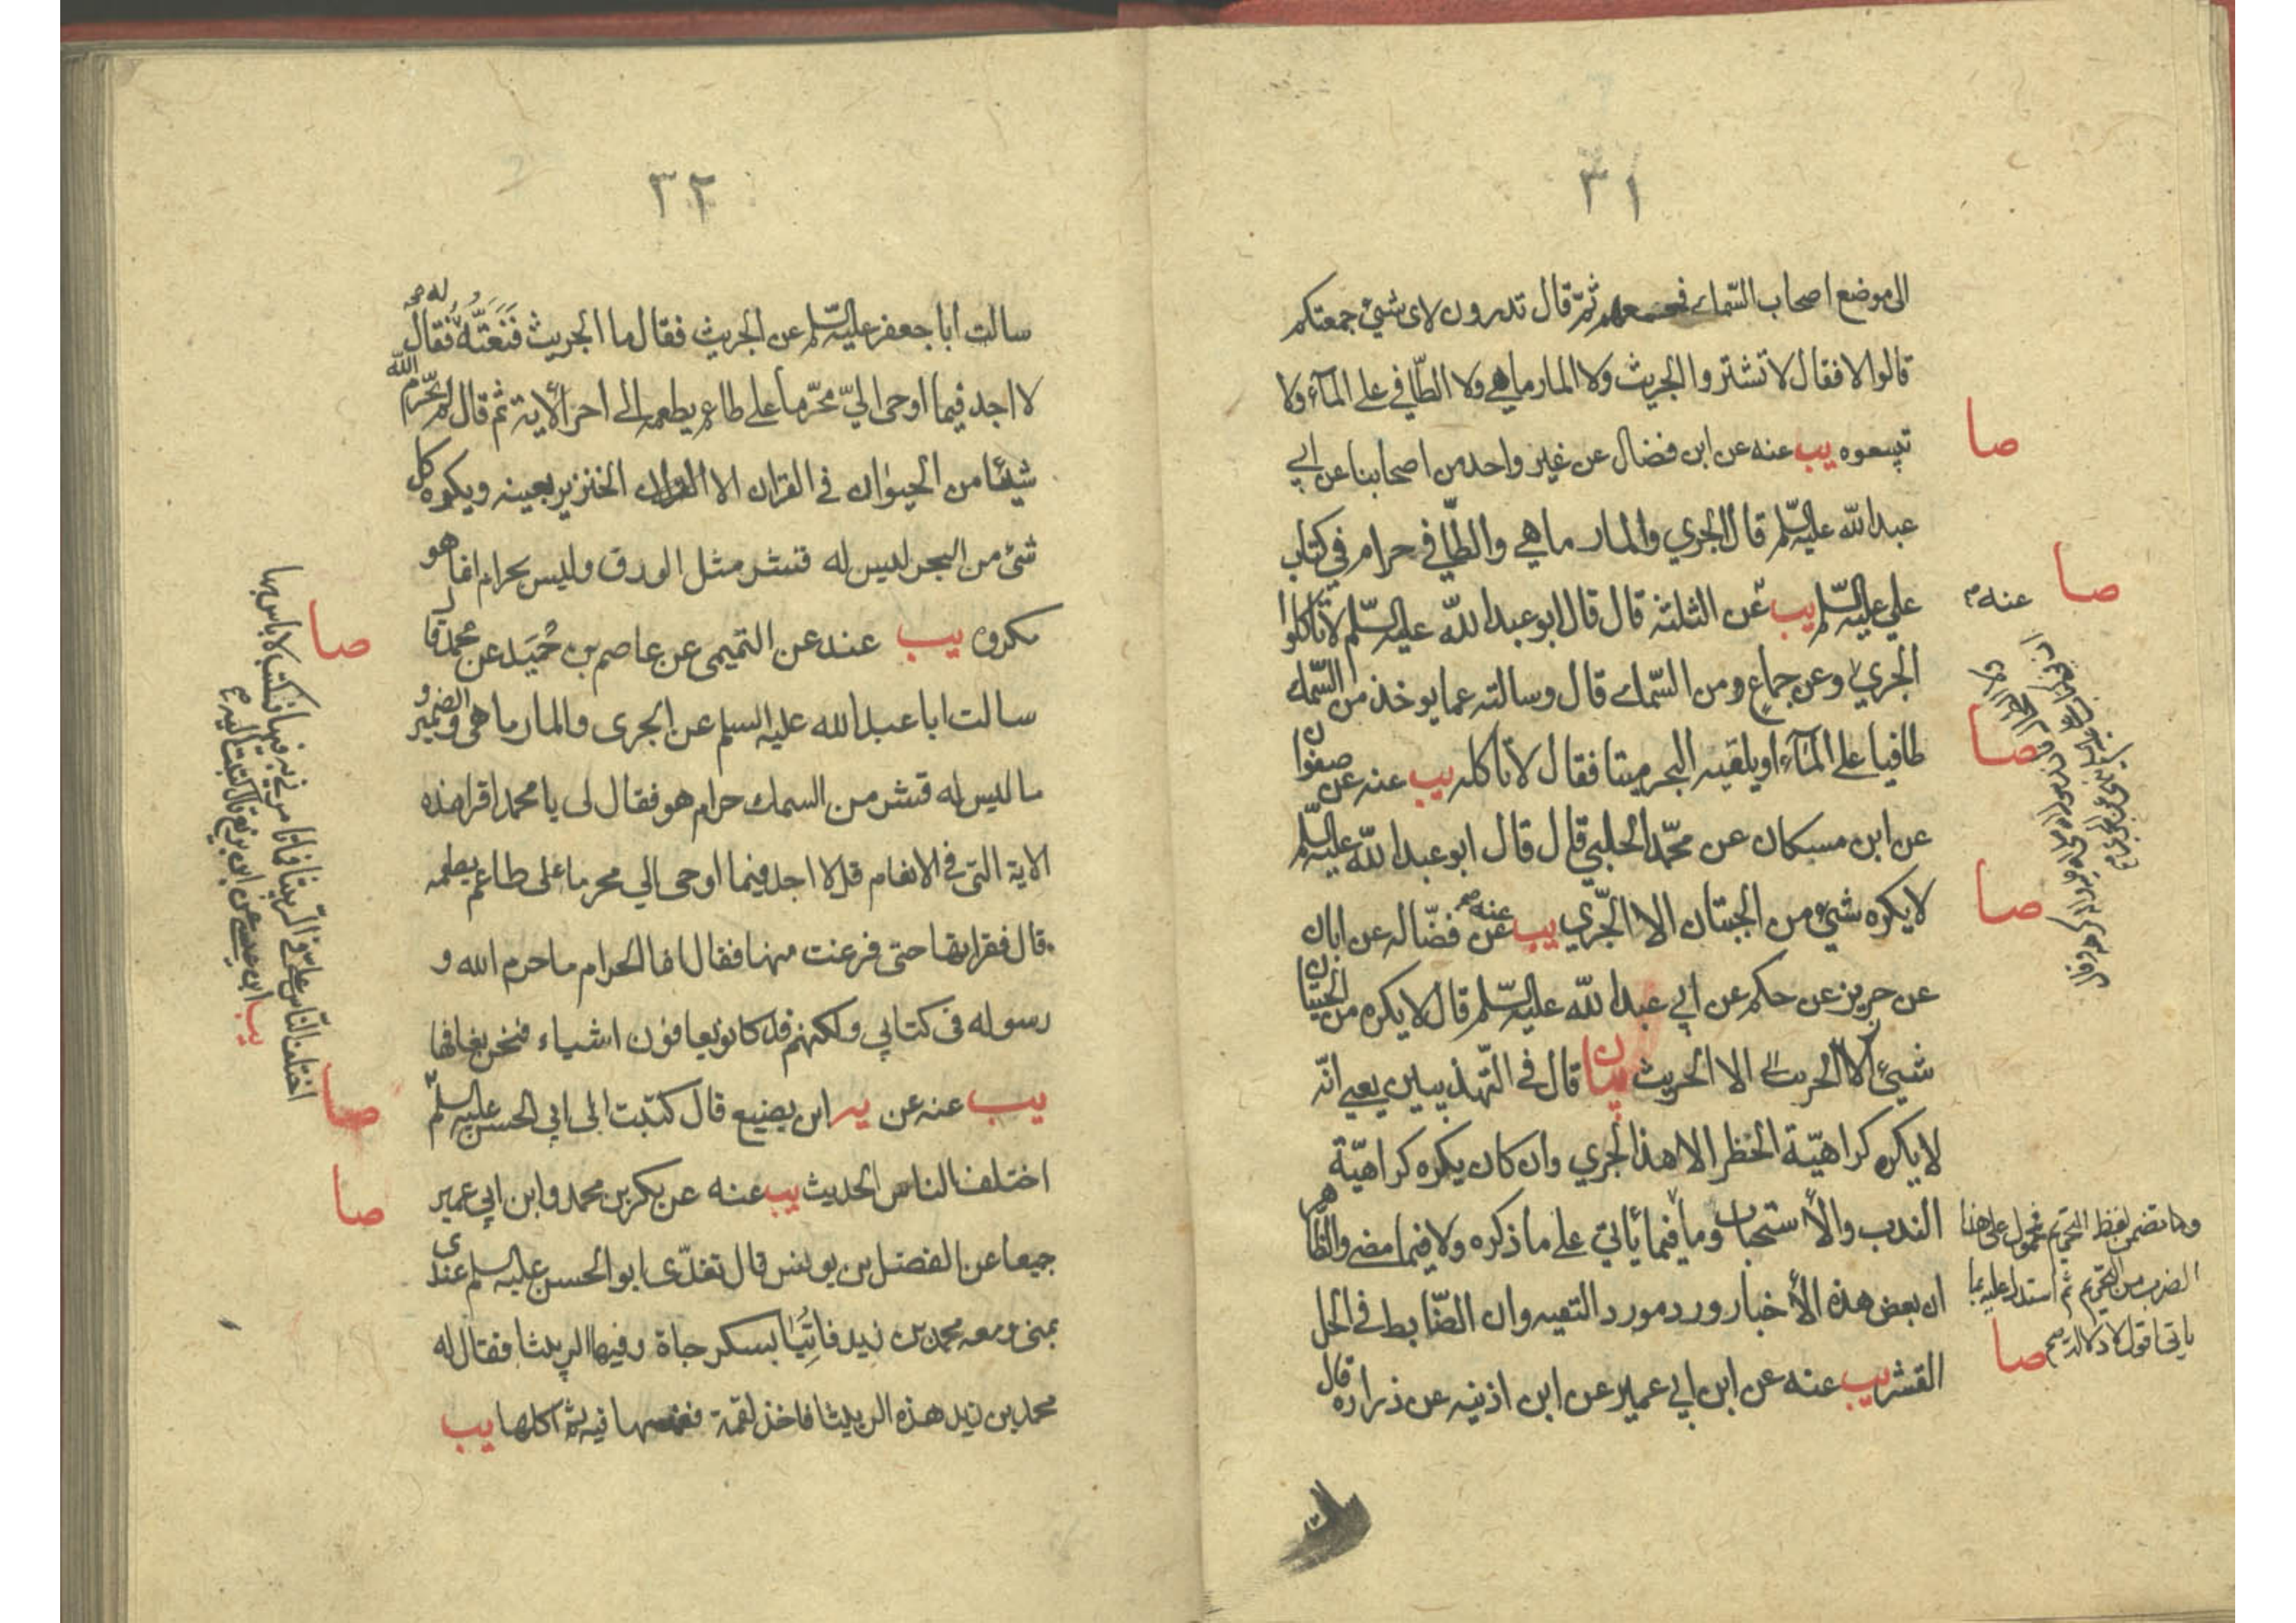 ٣١
الى موضع اصحاب السّمك فجمعهم ثمّ قال تدرون لاى شىء جمعتكم
قالوا لا فقال لا تشتروا الجريث ولا المارماهي ولا الطّافي على المآء ولا
تبيعوه يب عنه عن ابن فضال عن غير واحد من اصحابنا عن ابي
عبد الله عليه السّلم قال الجري والمارماهي والطّافي حرام في كتاب
علي عليه السّلم يب عن الثلثة قال قال ابو عبد الله عليه السّلم لا تاكلوا
الجري وعن جماع ومن السّمك قال وسالته عما يوخذ من السّمك
طافيا على المآء او يلقيه البحر ميتا فقال لا تاكله يب عنه عن صفوان
عن ابن مسكان عن محمّد الحلبي قال قال ابو عبد الله عليه السّلم
لا يكره شىء من الحيتان الا الجّري يب عنه عن فضّاله عن ابان
عن حريز عن حكم عن ابي عبد الله عليه السّلم قال لا يكره من الحيتان
شىء الا الجريث بيان قال في التهذيبين يعني انّه
لا يكره كراهيّة الحظر الا هذا الجري وان كان يكره كراهيّة
الندب والأستحباب وما فيما يأتي على ما ذكره ولا فيما مضى والظاهر
ان بعض هذه الأخبار ورد مورد التقيه وان الضّابط في الحل
القشر يب عنه عن ابن ابي عمير عن ابن اذينه عن زراره قال
صا
صا
عنه
صا
صا
وما تضمن لفظ التحريم محمول على هذا
الضرب من التحريم ثم استدل عليه بما
ياتي اقول لا دلالة
صا
٣٢
سالت ابا جعفر عليه السّلم عن الجريث فقال ما الجريث فَنَعَتُّهُ له فقال
لا اجد فيما اوحى الىّ محرّما على طاعم يطعمه الى اخر الأية ثم قال لم يحرّم الله
شيئا من الحيوان في القران الا الخنزير بعينه ويكره كل
شىء من البحر ليس له قشر مثل الورق وليس بحرام انما هو
مكروه يب عنه عن التميمى عن عاصم بن حُمَيد عن محمد قال
سالت ابا عبد الله عليه السلم عن الجرى والمارماهى والضمير و
ما ليس له قشر من السمك حرام هو فقال لى يا محمد اقرا هذه
الاية التى فى الانعام قل لا اجد فيما اوحى الي محرما على طاعم يطعمه
قال فقراتها حتى فرغت منها فقال انما الحرام ما حرم الله و
رسوله فى كتابي ولكنهم قد كانو يعافون اشياء فنحن نعافها
يب عنه عن يه ابن بزيع قال كتبت الى ابى الحسن عليه السلم
اختلف الناس الحديث يب عنه عن بكر بن محمد وابن ابي عمير
جميعا عن الفضل بن يونس قال تغدّى ابو الحسن عليه السلم عندى
بمنى ومعه محمد بن زيد فاتيا بسكرجاة وفيها الربيثا فقال له
محمد بن زيد هذه الربيثا فاخذ لقمة فغمسها فيه ثم اكلها يب
صا
صا
صا
يب ابن عيسى عن ابن بزيع قال كتبت اليه ع
اختلف النّاس علىّ فى الرّبيثا فما تامرنى به فيها فكتب لا باس بها